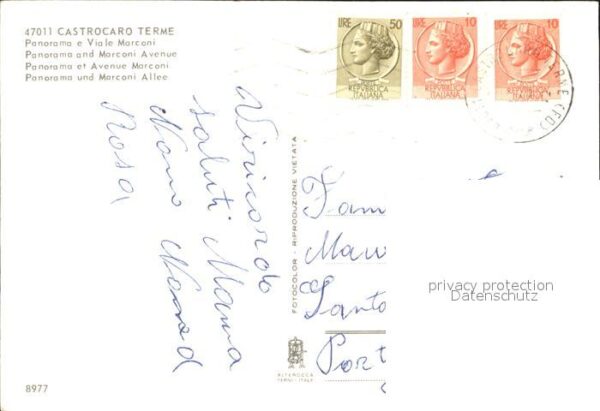 47011 CASTROCARO TERME
Panorama e Viale Marconi
Panorama and Marconi Avenue
Panorama et Avenue Marconi
Panorama und Marconi Allee
LIRE 50
REPVBBLICA
ITALIANA
LIRE 10
REPVBBLICA
ITALIANA
LIRE 10
REPVBBLICA
ITALIANA
TERME (FO)
Vi ricordo
saluti Mama
Nono
Rosa
FOTOCOLOR - RIPRODUZIONE VIETATA
Fam
Mau
Santo
Port
privacy protection
Datenschutz
TERNI - ITALY
8977